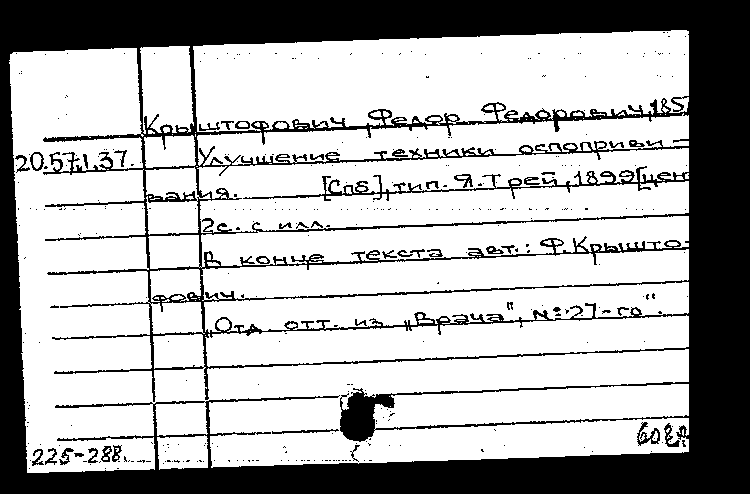 Крыштофович, Федор Федорович, 185
20.57.1.37. Улучшение техники оспоприви-
вания. [Спб.], тип. Я. Трей, 1899 [цен
2с. с илл.
В конце текста авт.: Ф. Крышто-
фович.
"Отд. отт. из "Врача", №27-го".
225-288.